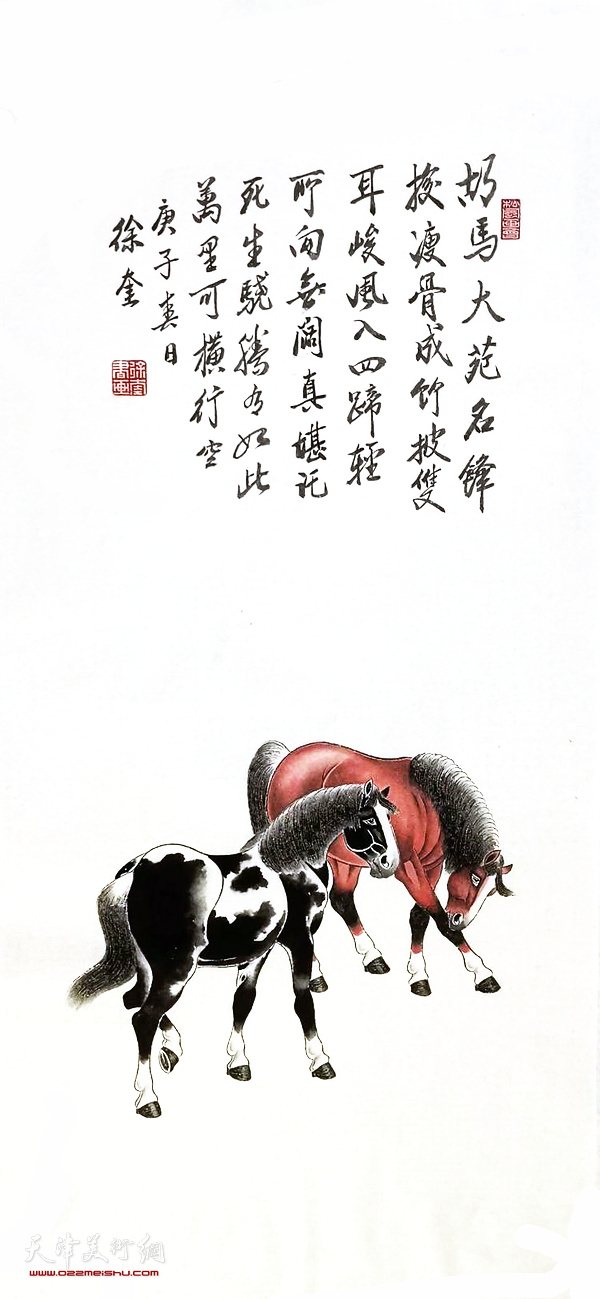 胡馬大苑名鋒
棱瘦骨成竹披雙
耳峻風入四蹄輕
所向無闊真堪託
死生驍騰有如此
萬里可橫行空
庚子春日
徐奎
徐奎書畫
天津美術網
www.022meishu.com